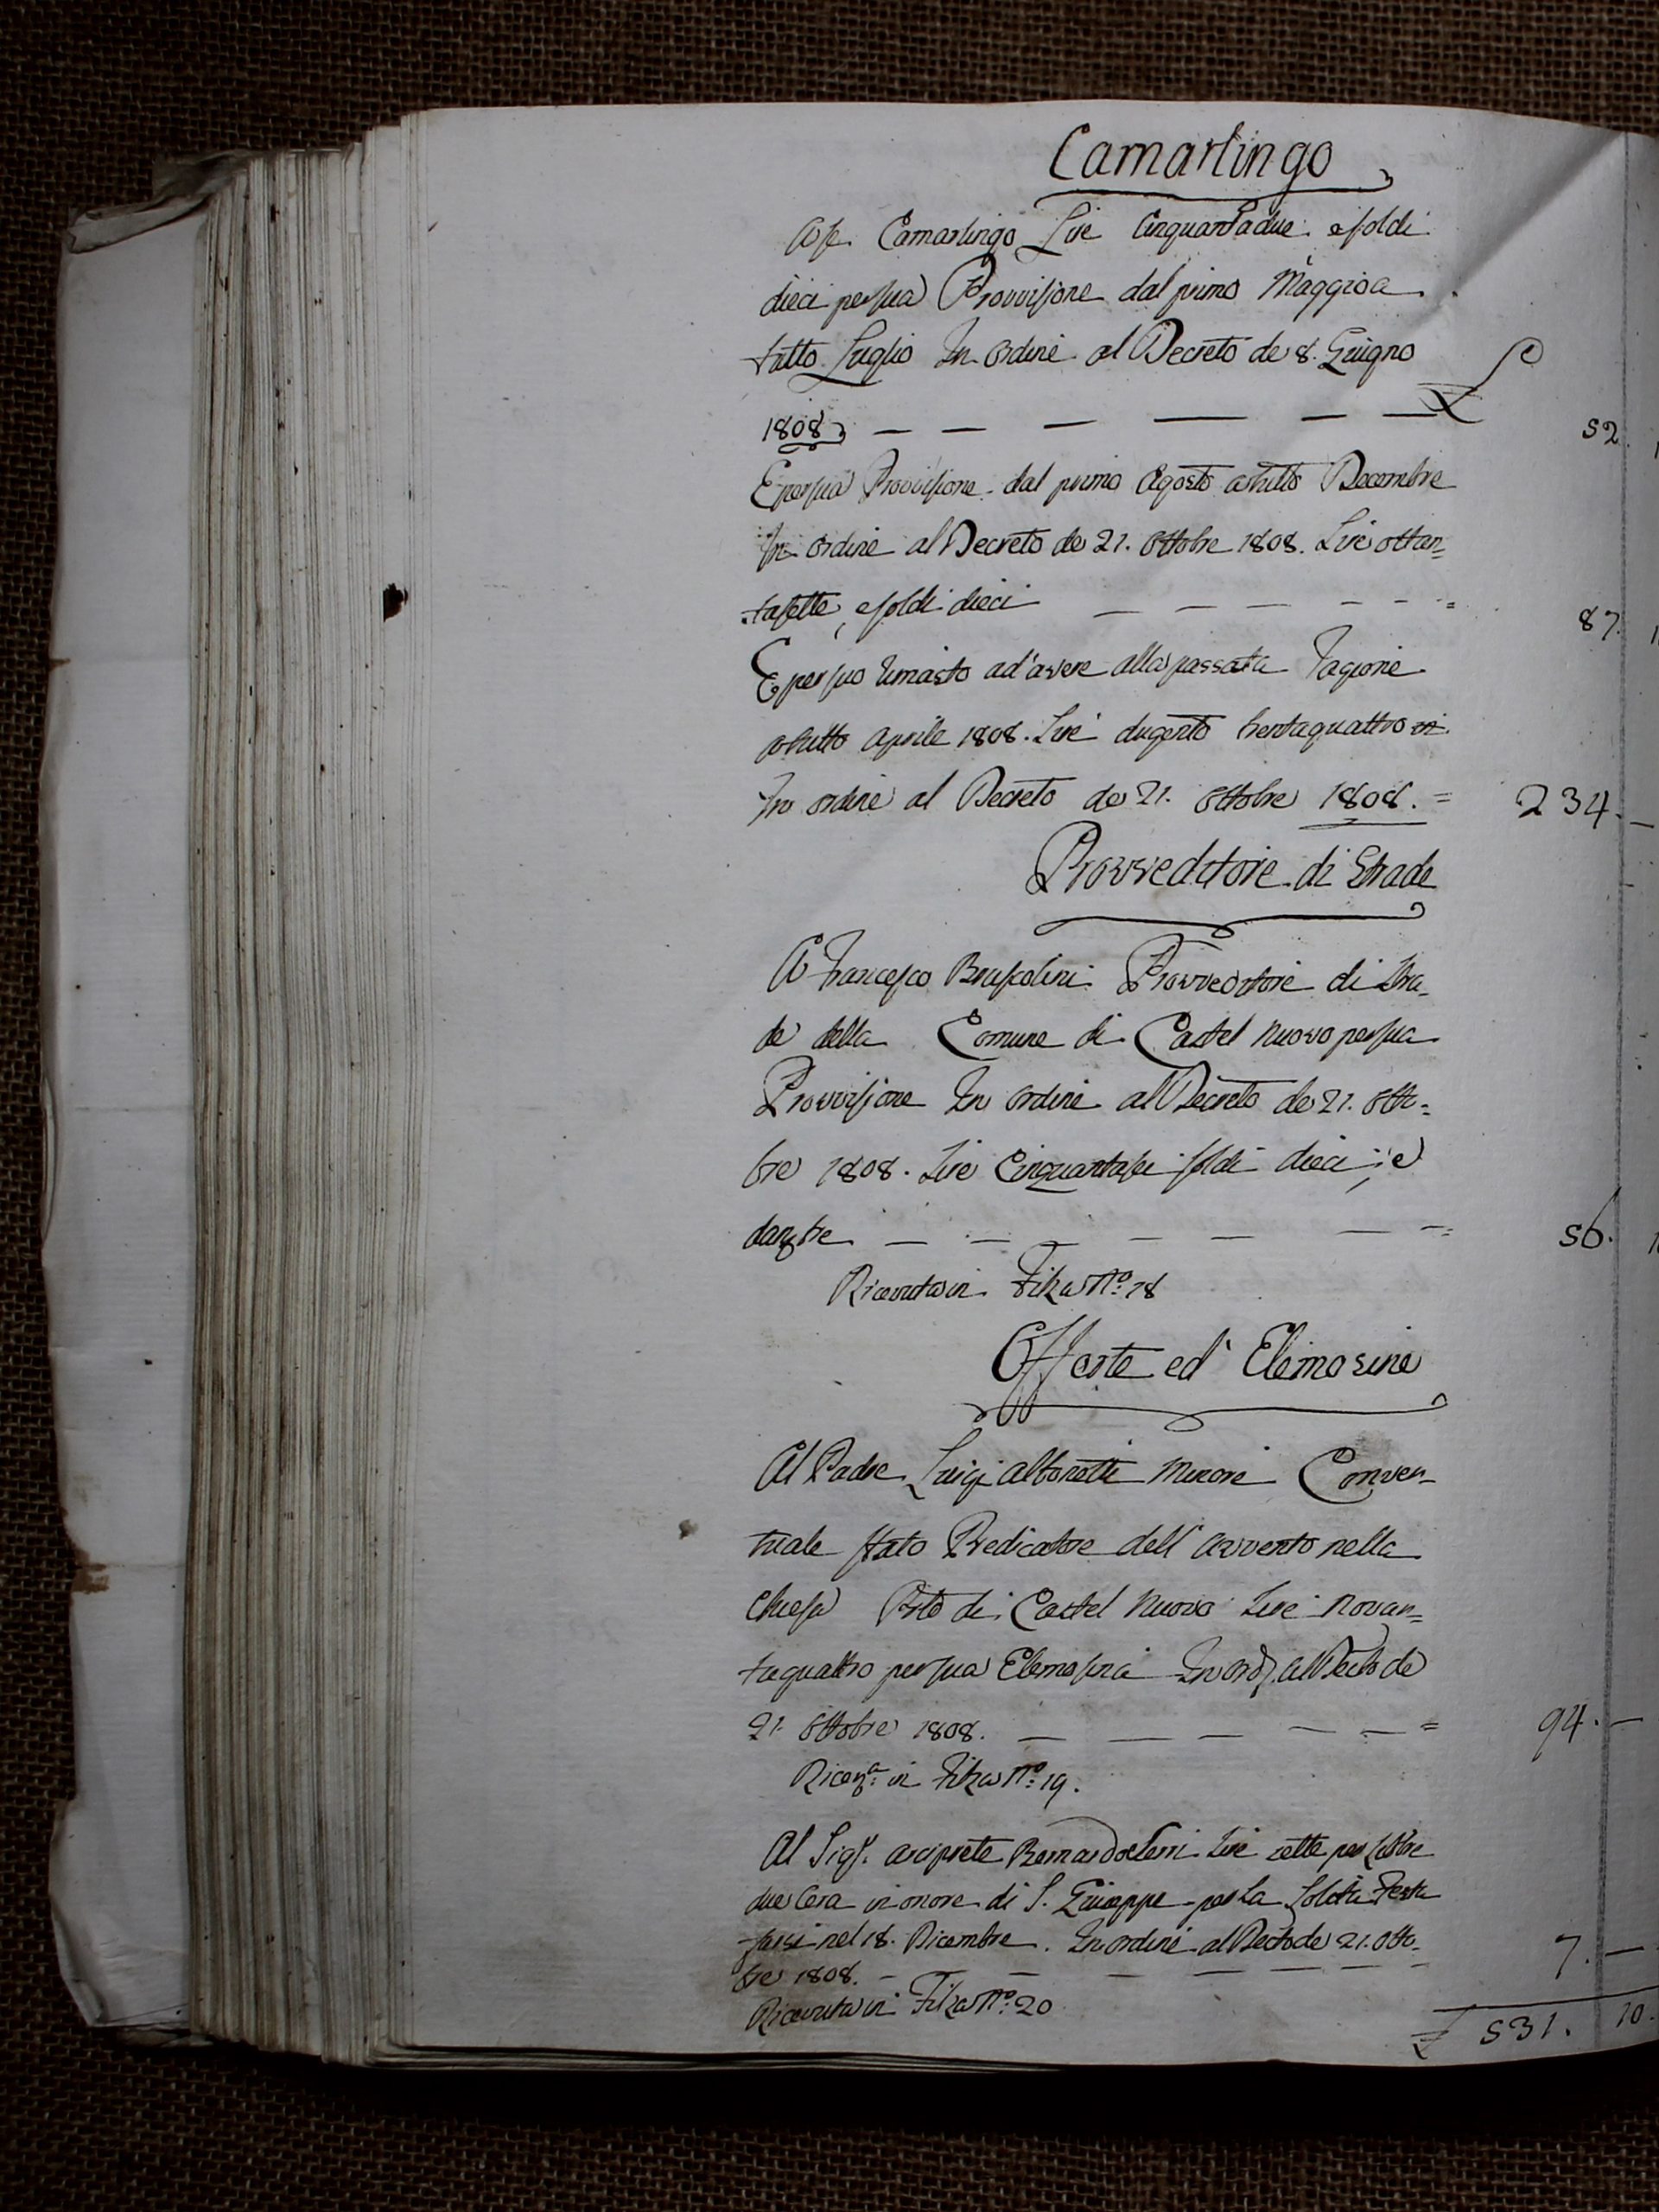 Camarlingo
A se Camarlingo Lire Cinquantadue e soldi
dieci per sua Provvisione dal primo Maggio a
tutto Luglio In ordine al Decreto de 8. Giugno
1808 — — — — — — £ 52
E per sua Provvisione dal primo Agosto a tutto Decembre
In ordine al Decreto de 21. Ottobre 1808. Lire ottan=
tasette, e soldi dieci — — — — — = 87.
E per suo rimasto ad'avere alla passata Ragione
a tutto Aprile 1808. Lire dugento trentaquattro
In ordine al Decreto de 21. Ottobre 1808. = 234. —
Provveditore di Strade
A Francesco Provveditore di Stra=
de della Comune di Castel nuovo per sua
Provvisione In ordine al Decreto de 21. Otto=
bre 1808. Lire Cinquantasei soldi dieci, e
dan: tre — — — — — — = 56.
Ricevuta in Filza N.o 18
Offerte ed' Elimosine
Al Padre Luigi Minore Conven=
tuale stato Predicatore dell' Avvento nella
Chiesa di Castel Nuovo Lire Novan=
taquattro per sua Elemosina In ord. al Dec.to de
21. Ottobre 1808. — — — — = 94. —
Ricev.a in Filza N.o 19.
Al Sig.r Arciprete Lire sette per Libbre
due Cera in onore di S. Giuseppe per la Solita Festa
farsi nel 18. Dicembre. In ordine al Dec.to de 21. Otto=
bre 1808. — — — — — — — 7. —
Ricevuta in Filza N.o 20
£ 531. 10.